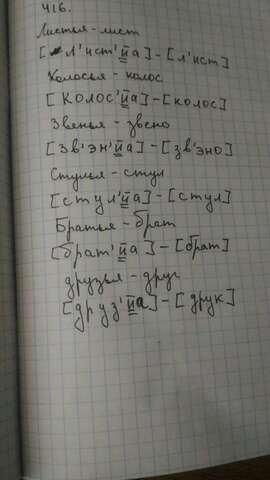 416.
Листья - лист
[л'ист'йа] - [л'ист]
Колосья - колос
[колос'йа] - [колос]
Звенья - звено
[зв'эн'йа] - [зв'эно]
Стулья - стул
[стул'йа] - [стул]
Братья - брат
[брат'йа] - [брат]
друзья - друг
[друз'йа] - [друк]